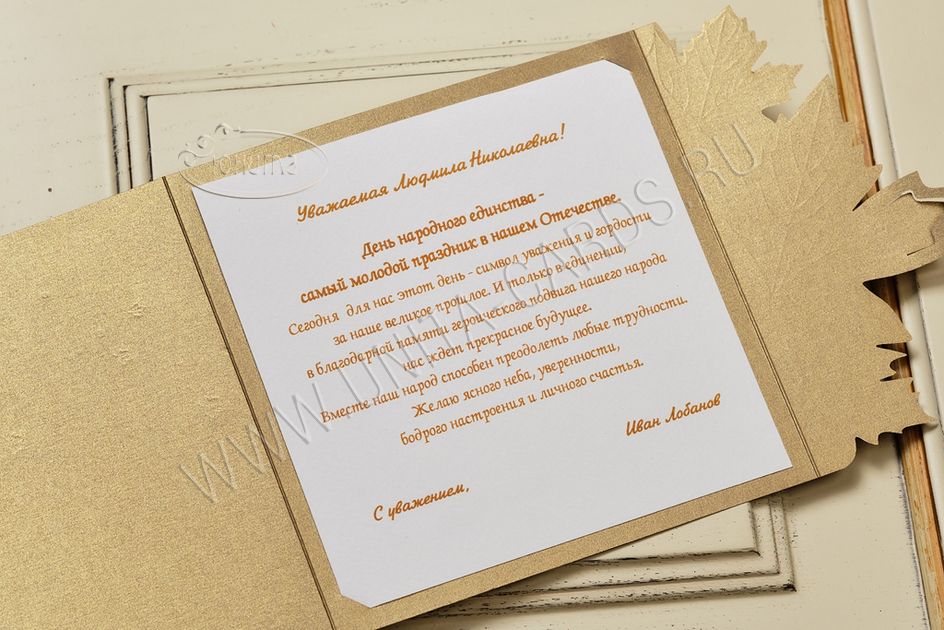 Уважаемая Людмила Николаевна!
День народного единства -
самый молодой праздник в нашем Отечестве.
Сегодня для нас этот день - символ уважения и гордости
за наше великое прошлое. И только в единении,
в благодарной памяти героического подвига нашего народа
нас ждет прекрасное будущее.
Вместе наш народ способен преодолеть любые трудности.
Желаю ясного неба, уверенности,
бодрого настроения и личного счастья.
Иван Лобанов
С уважением,
WWW.UNITA-CARDS.RU